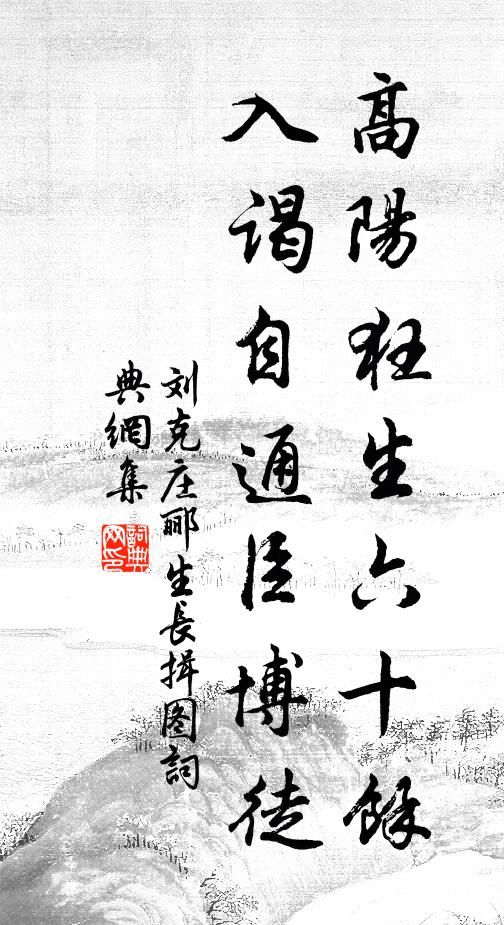 高陽狂生六十餘
入謁自通臣博徒
刘克庄郦生長揖图詞
典網集
詞典
网印